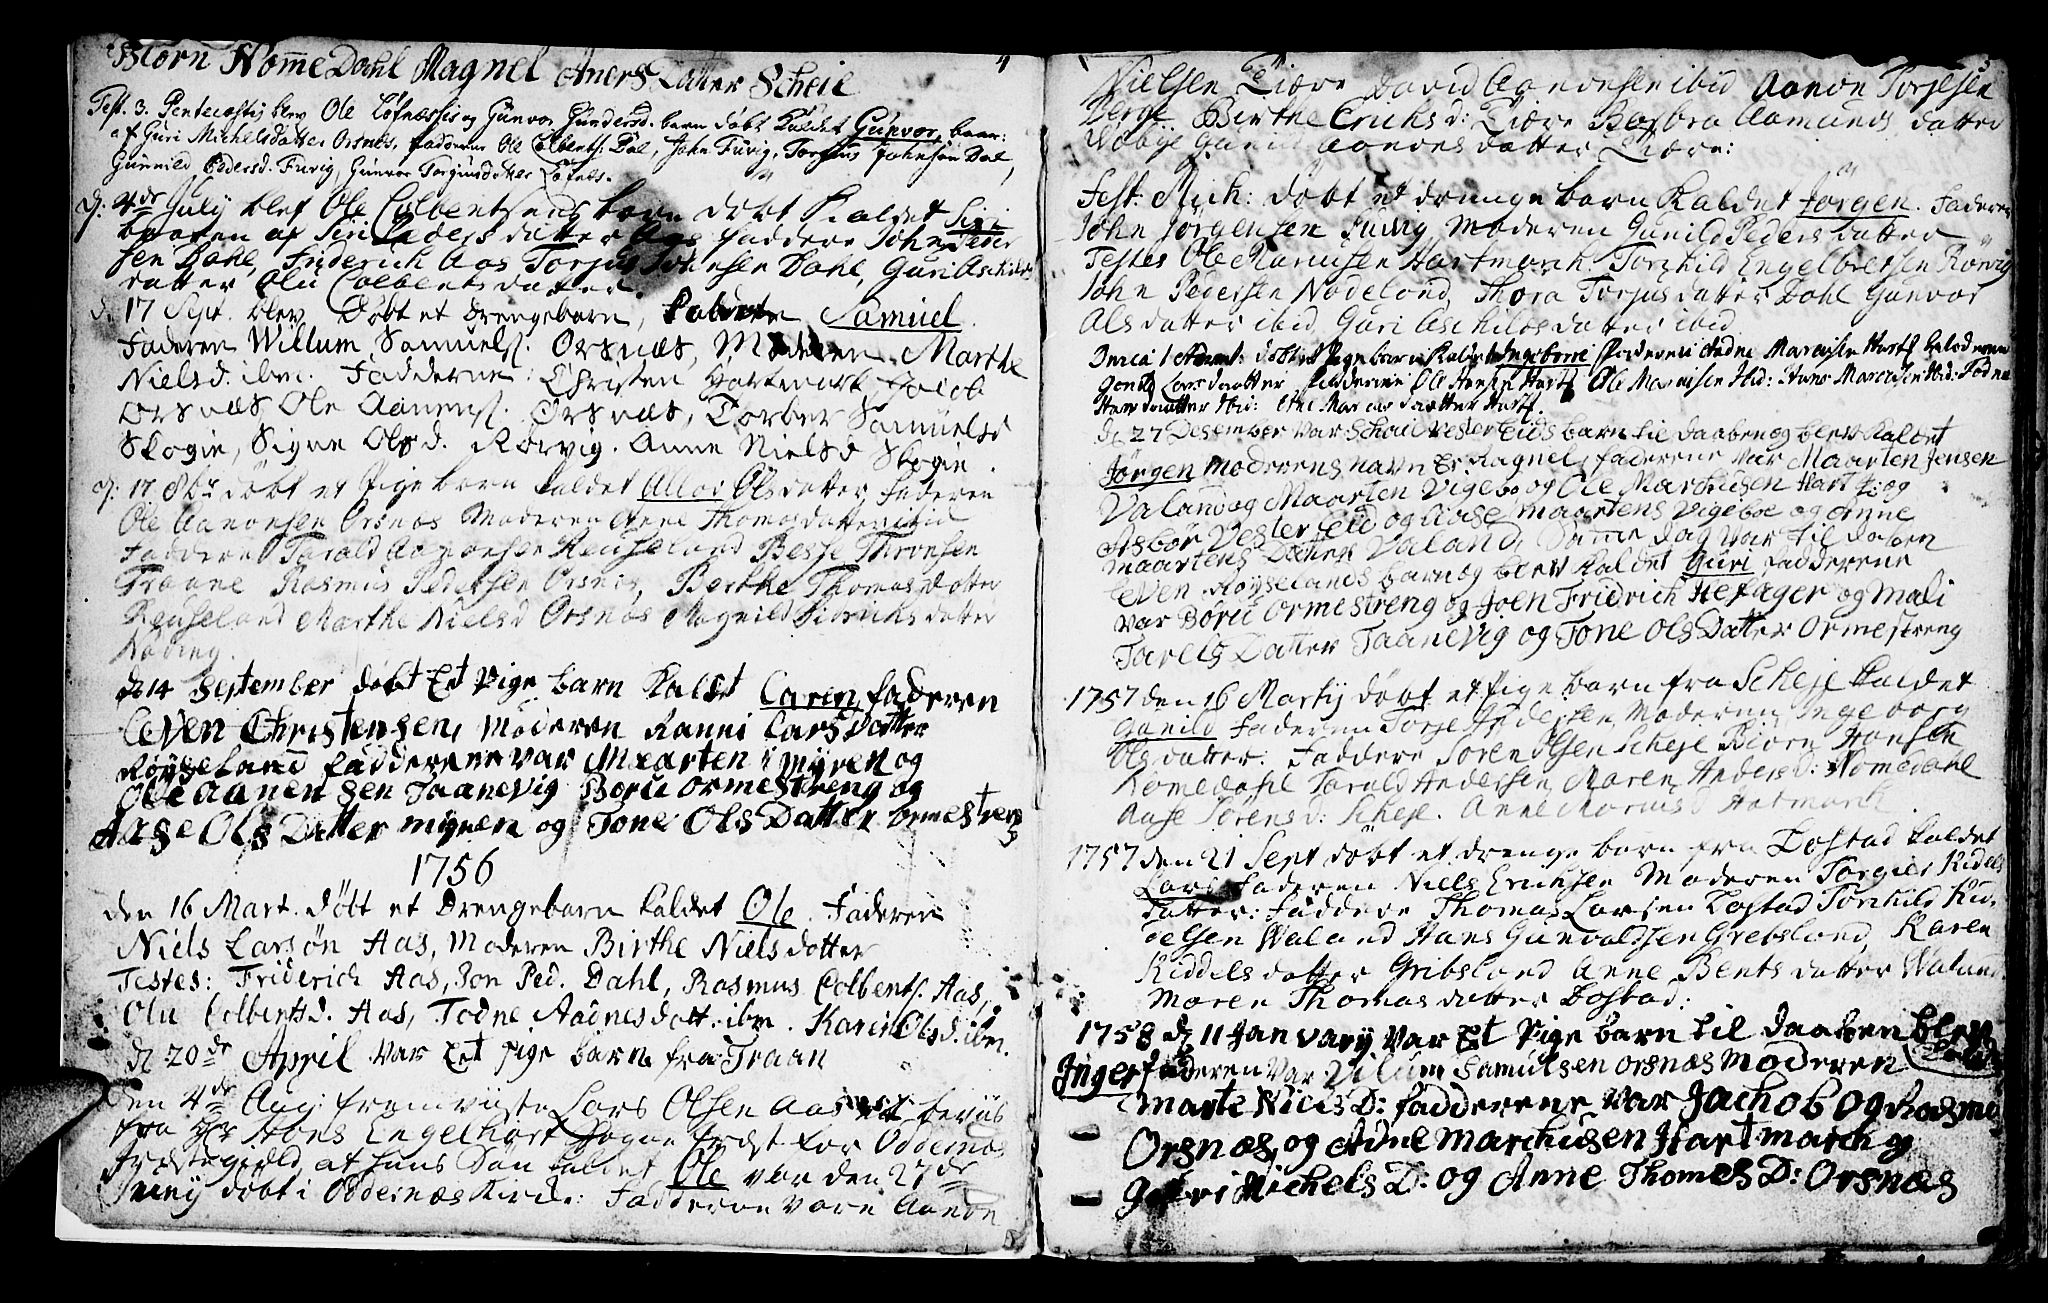 4
Biørn NommeDahl Magnel Aners Datter Scheie
Fest. 3. Pentecostij blev Ole Gunvor Gundersd. barn døbt kaldet Gunvor, baar:
af Guri Michelsdatter Orsnes, faddere Ole Colbents. Dal, John Fuvig, Torjus Johnsøn Dal,
Gunnild Pedersd. Fuvig, Gunvor Torgiusdatter
d: 4de July blef Ole Colbentsens barn døbt kaldet Siri
baaren af Siri Peders datter Aas faddere John Peder
sen Dahl, Friderich Aas Torjus Johnsen Dahl, Guri Aschilds
datter Olu Colbents datter.
d. 17 Sept. blev Døbt et drengebarn, kaldet Samuel.
Faderen Willum Samuels: Orsnæs, Moderen Marthe
Nielsd. ibm. Fadderne: Christen Hartmark Jacob
Orsnæs Ole Aanens: Orsnæs, Torber Samuelsd
Skogie, Signe Olsd. Rørvig. Anne Nielsd Skogie.
d: 17 8br døbt et Pige barn kaldet Ols datter Faderen
Ole Aanonsen Orsnæs Moderen Anne Thomasdatter ibid
Faddere Tarald Aanonsen Reuseland Besse Torsen
Traane Rasmus Pedersen Orsnes, Berthe Thomas datter
Reuseland Marthe Niels d Orsnæs Magnild datter

d 14 September døbt Et Pige barn kaldt Caren faderen
Even Christensen, Moderen Ranni Lars Datter
Røyseland fadderene var Maarten i myren og
Ole aanensen Taanevig Boru ormestreng og
Aase Ols Datter myren og Tone Ols Datter ormestreng
1756
den 16 Mart. døbt et Drengebarn kaldet Ole. Faderen
Niels Larsøn Aas, Moderen Birthe Niels dotter
Testes: Friderich Aas, Jon Ped. Dahl, Rasmus Colbents. Aas,
Olu Colbentsd. Aas, Todne Aadnes dott. ibm. Karen Olsd. ibm.
d 20de April var Et pige barn fra Traan
den 4de Aug: fremviiste Lars Olsen Aas et beviis
fra Hr Hans Engelhart Sogne Præst for Oddernæs
Præstegield, at hans Søn kaldet Ole var den 27de
Juny døbt i Oddernæs Kirke: Fadderne vare Aanon
5
Nielsen Tiøre David Aanonsen ibid Aanon Torjesen
Berge Birthe Eriks d: Tiøre Barbra Aamunds datter
Aanons datter Tiøre:
Fest. Mich: døbt et drenge barn kaldet Jørgen. Faderen
John Jørgensen Fuvig Moderen Gunild Peders datter
Testes Ole Marcusen Hartmark. Torkild Engelbretsen Rørvig
John Pedersen Nodeland, Thora Torjus datter Dahl Gunvor
Als datter ibid Guri Aschilds datter ibid
Dnica 1 Advent: døbt et Pige barn kaldet Ingeborre Faderen Aadne Marcusen Hartk Moderen
Lars daatter fadderne Ole Hansen Hartk Ole Marcusen Ibid: Hans Marcusen Ibid: Todne
Hans daatter Ibid: Ane Marcus daatter Hartk.
d 27 Desember var Vester Eids barn til daaben og blev kaldet
Jørgen moderens navn Er Ragnel, faderene var Maarten Jensen
Valand og Maarten Vigebo og Ole Marchusen Hart k: og
Asbør Vester Eid og Aase maartens Vigeboe og Anne
maartens Datter Valand, Samme dag var til daben
Even Røyselands barn og blev kaldet Guri fadderene
var Boru ormestreng og Joen Fridrich Hefager og Mali
Tarels Datter Taanevig og Tone Ols Datter Ormestreng
1757 den 16 Martij døbt et Pige barn fra Scheje kaldet
Gunild Faderen Torje Andersen Moderen Ingeborg
Ols datter: Faddere Søren Olsen Scheje Biørn Hansen
Nomedahl Tarald Andersen, Maren Anders d: Nomedahl
Aase Sørens d: Scheje. Anne Marcus d Hartmark
1757 den 21 Sept døbt et drenge barn fra Dostad kaldet
Lars Faderen Niels Eriksen Moderen Torgier Kidels
datter: Faddere Thomas Larsen Dostad Torkild Kid-
delsen Waland Hans Gunvaldsen Grebsland, Karen
Kiddels datter Gribsland Anne Bents datter Waland
Maren Thomas datter Dostad:
1758 d 11 January var Et Pige barn til daaben blev kaldet
Inger faderen var Vilum Samulsen orsnæs moderen
Marte Niels D: fadderene var Jachob og Rasmus
Orsnæs, og Arne Marchusen Hartmarch og
Guri Michels D: og Anne Thomes D: Orsnæs